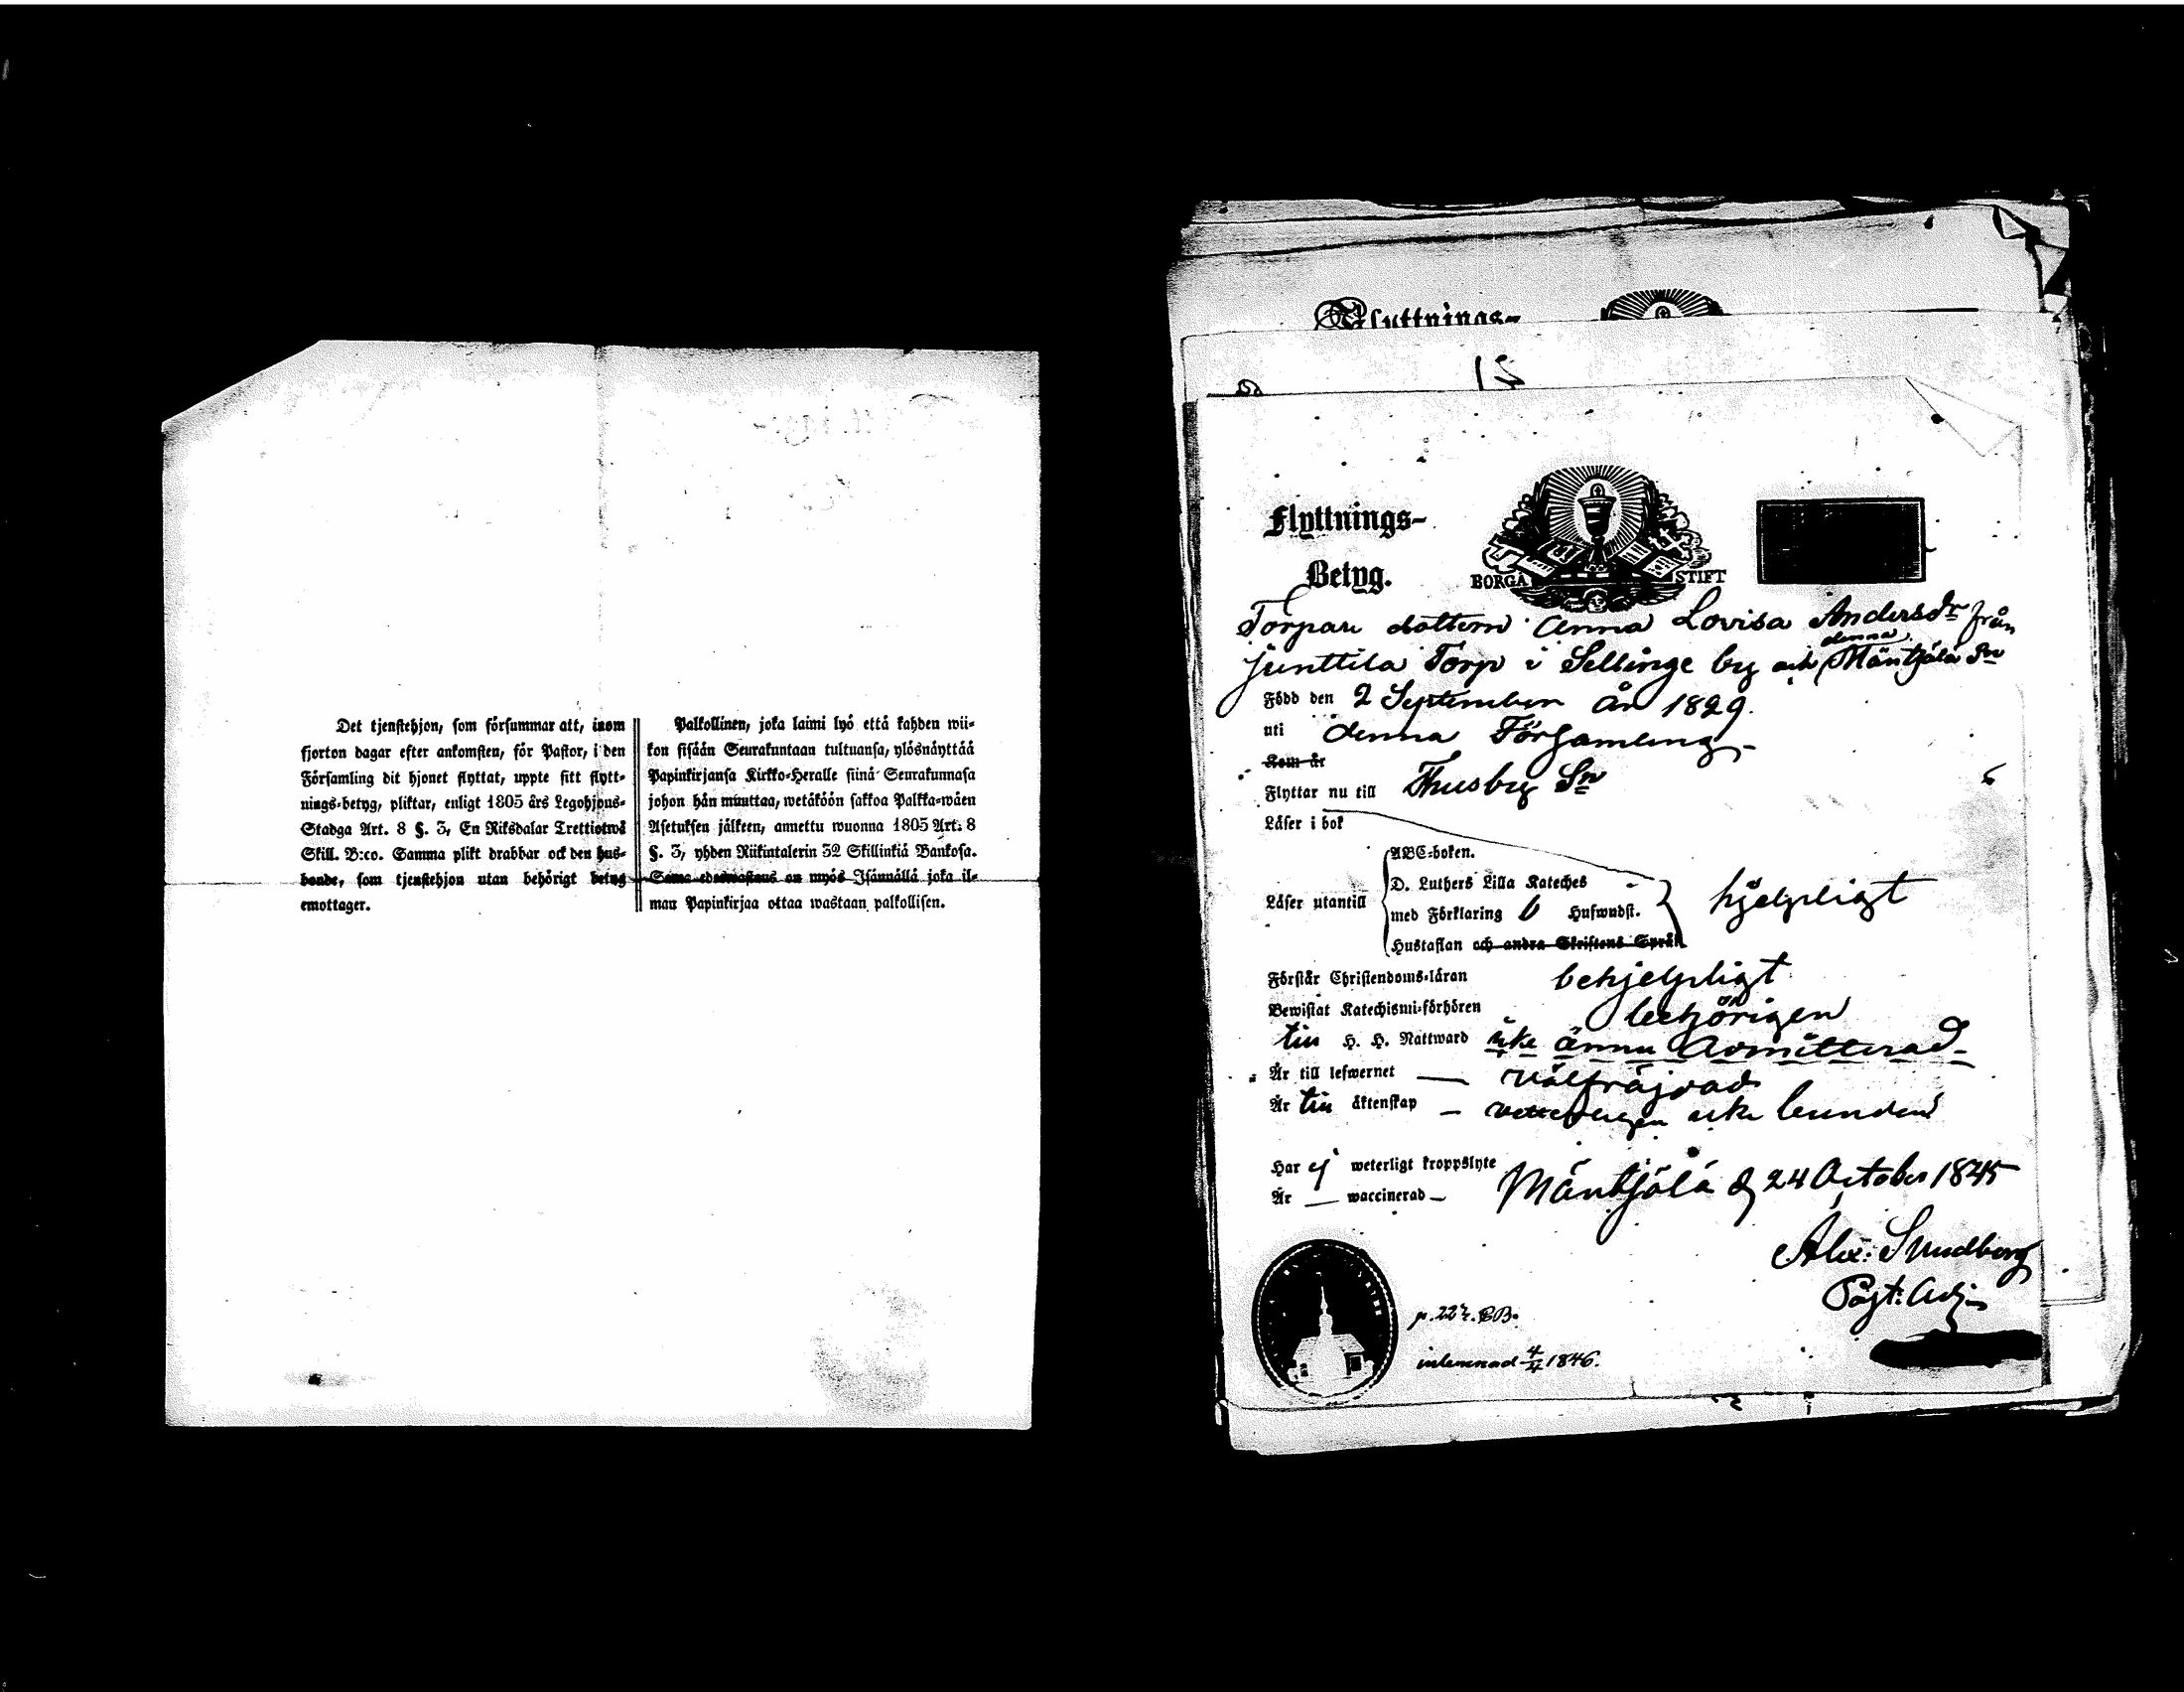 Det tjenstehjon, som försummar att, inom
fjorton dagar efter ankomsten, för Pastor, i den
Församling dit hjonet flyttat, uppte sitt flytt-
nings-betyg, pliktar, enligt 1805 års Legohjons-
Stadga Art. 8 §. 3, En Riksdalar Trettiotwå
Skill. B:co. Samma plikt drabbar ock den hus-
bonde, som tjenstehjon utan behörigt betyg
emottager.
Palkollinen, joka laimi lyö että kahden wii-
kon sisään Seurakuntaan tultuansa, ylösnäyttää
Papinkirjansa Kirkko-Heralle siinä Seurakunnasa
johon hän muuttaa, wetäköön sakkoa Palkka-wäen
Asetuksen jälkeen, annettu wuonna 1805 Art. 8
§. 3, yhden Riikintalerin 32 Skillinkiä Bankosa.
Sama edeswastaus on myös Isännällä joka il-
man Papinkirjaa ottaa wastaan palkollisen.
Flyttnings-
15
Flyttnings-
Betyg.
BORGÅ STIFT
Torpare dottern Anna Lovisa Andersdr från
denna
Junttila Torp i Sellinge by och Mäntsälä Sn
Född den 2 September År 1829.
uti denna Församling
Som är
Flyttar nu till Thusby Sn
Läser i bok
ABC-boken.
D. Luthers Lilla Kateches
Läser utantill med Förklaring 6 Hufwudst. hjelpligt
Hustaflan och andra Skriftens Språk
Förstår Christendoms-läran behjelpligt
Bewistat Katechismi-förhören behörigen
till H. H. Nattward icke ännu Admitterad
Är till lefwernet — välfräjdad
Är till äktenskap — veterligen icke bunden
Har ej weterligt kroppslyte
Är — waccinerad —
Mäntsälä d 24 October 1845
Alex: Sundberg
Past: Adj:
p. 227. CB.
inlemnad 4/4 1846.